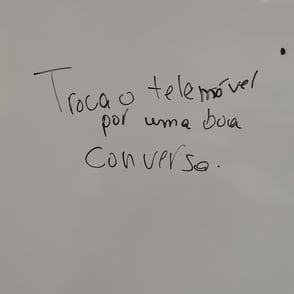 Troca o telemóvel
por uma boa
conversa.